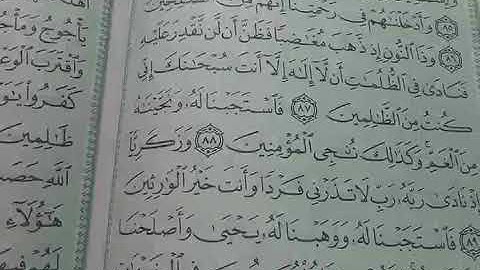 ٨٥ وَأَدْخَلْنَٰهُمْ فِى رَحْمَتِنَآ إِنَّهُم مِّنَ
٨٦ وَذَا ٱلنُّونِ إِذ ذَّهَبَ مُغَٰضِبًا فَظَنَّ أَن لَّن نَّقْدِرَ عَلَيْهِ
فَنَادَىٰ فِى ٱلظُّلُمَٰتِ أَن لَّآ إِلَٰهَ إِلَّآ أَنتَ سُبْحَٰنَكَ إِنِّى
كُنتُ مِنَ ٱلظَّٰلِمِينَ ٨٧ فَٱسْتَجَبْنَا لَهُۥ وَنَجَّيْنَٰهُ
مِنَ ٱلْغَمِّ وَكَذَٰلِكَ نُۨجِى ٱلْمُؤْمِنِينَ ٨٨ وَزَكَرِيَّآ
إِذْ نَادَىٰ رَبَّهُۥ رَبِّ لَا تَذَرْنِى فَرْدًا وَأَنتَ خَيْرُ ٱلْوَٰرِثِينَ
٨٩ فَٱسْتَجَبْنَا لَهُۥ وَوَهَبْنَا لَهُۥ يَحْيَىٰ وَأَصْلَحْنَا
يَأْجُوجُ
وَٱقْتَرَبَ
كَفَرُوا۟
ظَٰلِمِينَ
ٱللَّهِ
هَٰٓؤُلَآءِ
لَهُمْ فِيهَا